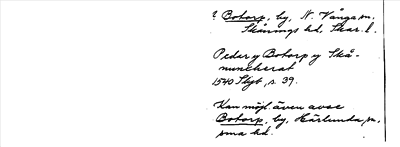 ? Botorp, by, N. Vånga sn,
Skånings hd, Skar. l.
Peder y Botorp y Skå-
nuncherat
1540 Skgb, s. 39.
Kan möjl. även avse
Botorp, by, Härlunda sn,
sma hd.